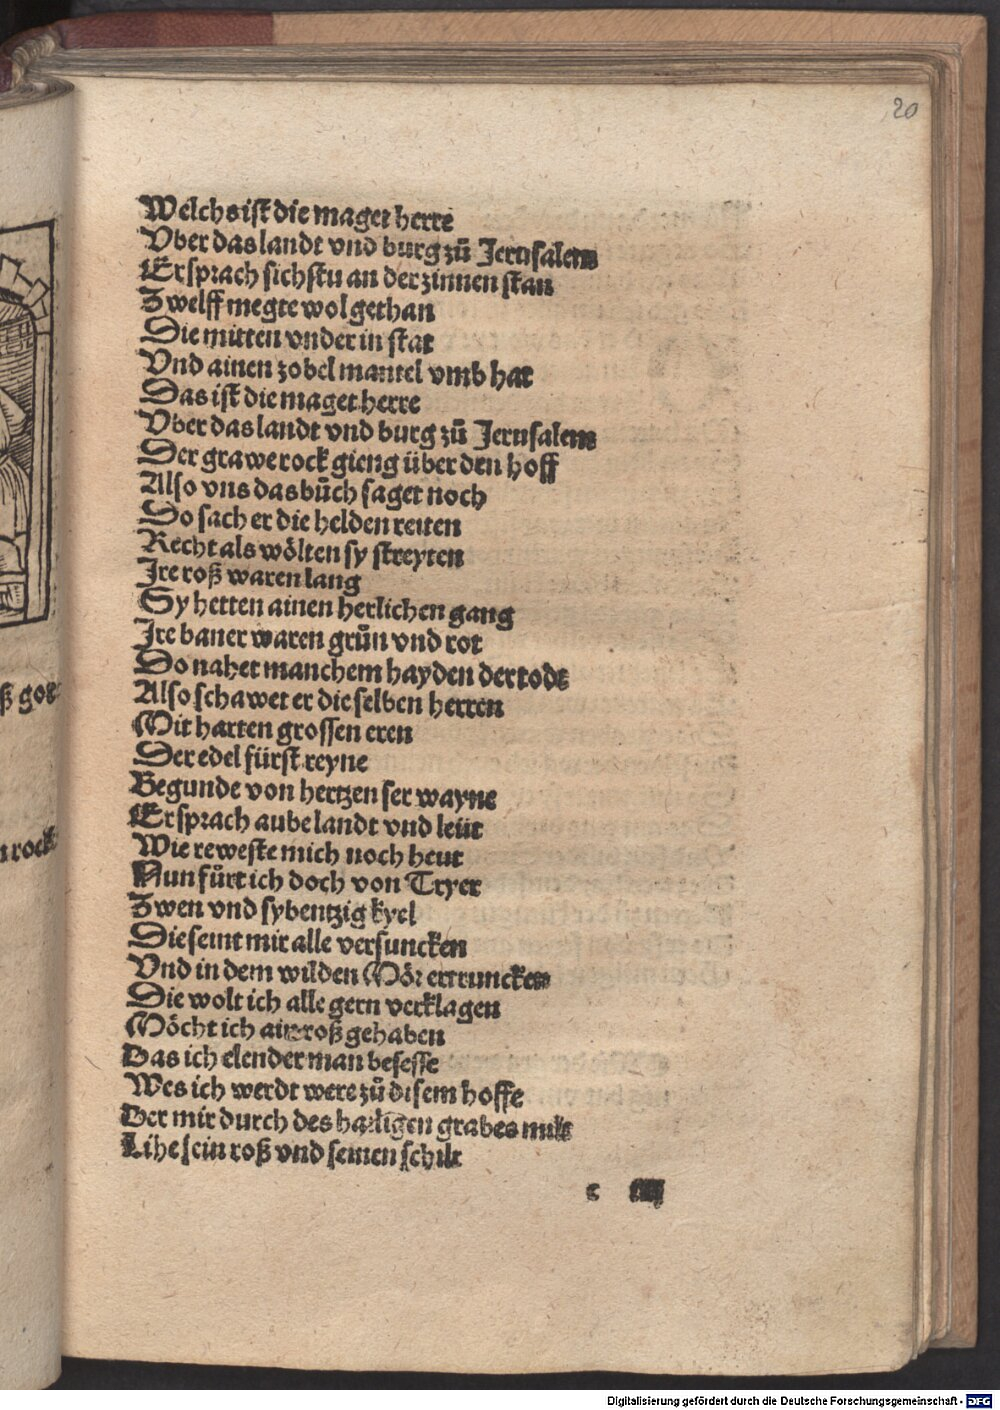 20
Welchs ist die maget herre
Vber das landt vnd burg zů Jerusalem
Er sprach sichstu an der zinnen stan
Zwelff megte wol gethan
Die mitten vnder in stat
Vnd ainen zobel mantel vmb hat
Das ist die maget herre
Vber das landt vnd burg zů Jerusalem
Der grawe rock gieng über den hoff
Also vns das bůch saget noch
Do sach er die helden reiten
Recht als wölten sy streyten
Jre roß waren lang
Sy hetten ainen herlichen gang
Jre baner waren grůn vnd rot
Do nahet manchem hayden der todt
Also schawet er die selben herren
Mit harten grossen eren
Der edel fürst reyne
Begunde von hertzen ser wayne
Er sprach aube landt vnd leüt
Wie reweste mich noch heut
Nun fůrt ich doch von Tryer
Zwen vnd sybentzig kyel
Die seint mir alle versuncken
Vnd in dem wilden Mör ertruncken
Die wolt ich alle gern verklagen
Möcht ich ain roß gehaben
Das ich elender man besesse
Wes ich werdt were zů disem hoffe
Der mir durch des hailigen grabes milt
Lihe sein roß vnd seinen schilt
c
ß gor
n rock
Digitalisierung gefördert durch die Deutsche Forschungsgemeinschaft - DFG